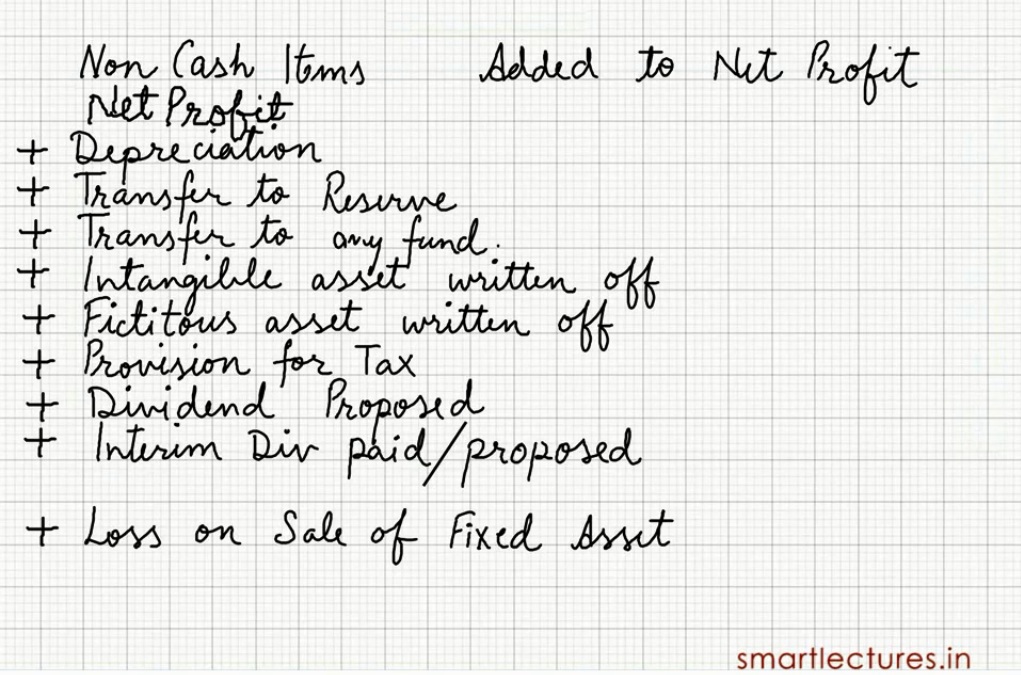 Non Cash Items Added to Net Profit
Net Profit
+ Depreciation
+ Transfer to Reserve
+ Transfer to any fund.
+ Intangible asset written off
+ Fictitous asset written off
+ Provision for Tax
+ Dividend Proposed
+ Interim Div paid/proposed
+ Loss on Sale of Fixed Asset
smartlectures.in